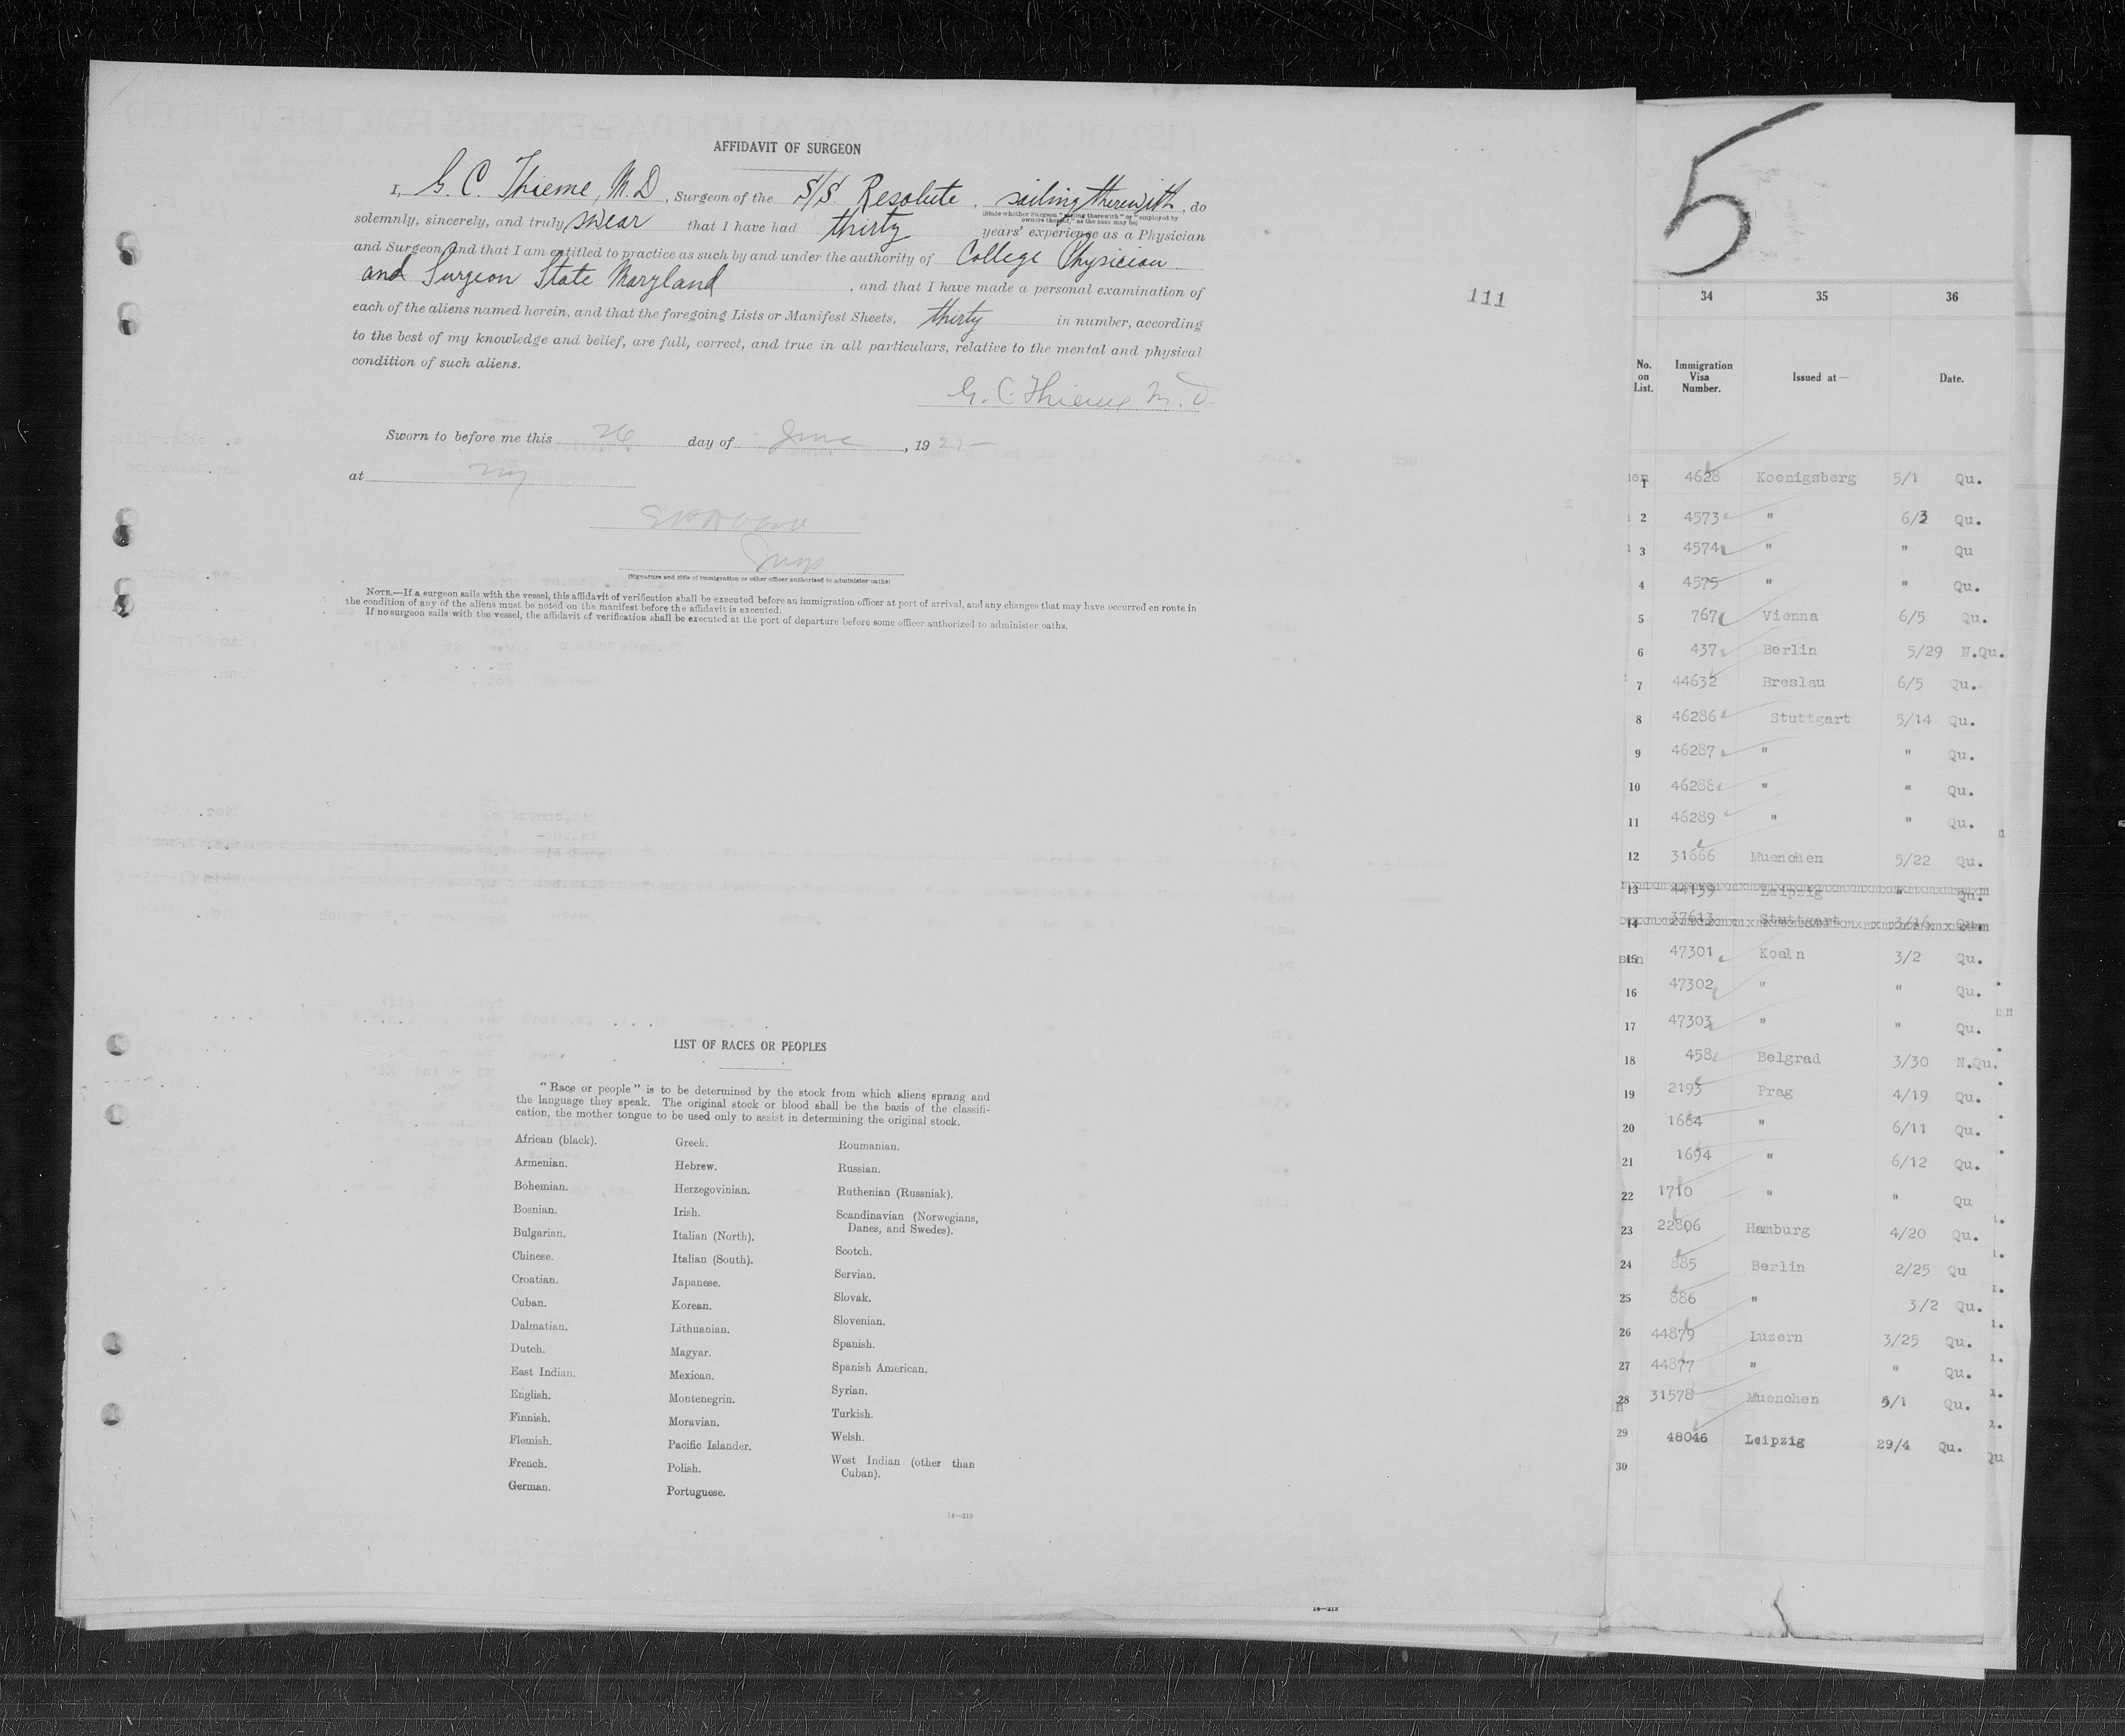 AFFIDAVIT OF SURGEON
I, G. C. Thieme, M.D., Surgeon of the S/S. Resolute, sailing therewith, do
(State whether Surgeon "sailing therewith" or "employed by
owners thereof," as the case may be)
solemnly, sincerely, and truly swear that I have had thirty years' experience as a Physician
and Surgeon and that I am entitled to practice as such by and under the authority of College Physician
and Surgeon State Maryland, and that I have made a personal examination of
each of the aliens named herein, and that the foregoing Lists or Manifest Sheets, thirty in number, according
to the best of my knowledge and belief, are full, correct, and true in all particulars, relative to the mental and physical
condition of such aliens.
G. C. Thieme M. D.
Sworn to before me this 26 day of June, 19
at NY
Insp
(Signature and title of immigration or other officer authorized to administer oaths)
NOTE.—If a surgeon sails with the vessel, this affidavit of verification shall be executed before an immigration officer at port of arrival, and any changes that may have occurred en route in
the condition of any of the aliens must be noted on the manifest before the affidavit is executed.
If no surgeon sails with the vessel, the affidavit of verification shall be executed at the port of departure before some officer authorized to administer oaths.
111
LIST OF RACES OR PEOPLES
"Race or people" is to be determined by the stock from which aliens sprang and
the language they speak. The original stock or blood shall be the basis of the classifi-
cation, the mother tongue to be used only to assist in determining the original stock.
African (black).
Armenian.
Bohemian.
Bosnian.
Bulgarian.
Chinese.
Croatian.
Cuban.
Dalmatian.
Dutch.
East Indian.
English.
Finnish.
Flemish.
French.
German.
Greek.
Hebrew.
Herzegovinian.
Irish.
Italian (North).
Italian (South).
Japanese.
Korean.
Lithuanian.
Magyar.
Mexican.
Montenegrin.
Moravian.
Pacific Islander.
Polish.
Portuguese.
Roumanian.
Russian.
Ruthenian (Russniak).
Scandinavian (Norwegians,
Danes, and Swedes).
Scotch.
Servian.
Slovak.
Slovenian.
Spanish.
Spanish American.
Syrian.
Turkish.
Welsh.
West Indian (other than
Cuban).
14—213
14—213
5
34 35 36
No. on List. Immigration Visa Number. Issued at— Date.
1 4628 Koenigsberg 5/1 Qu.
2 4573 " 6/3 Qu.
3 4574 " " Qu
4 4575 " " Qu.
5 767 Vienna 6/5 Qu.
6 437 Berlin 5/29 N.Qu.
7 44632 Breslau 6/5 Qu.
8 46286 Stuttgart 5/14 Qu.
9 46287 " " Qu.
10 46288 " " Qu.
11 46289 " " Qu.
12 31666 Muenchen 5/22 Qu.
13 44159 Leipzig " Qu.
14 37613 Stuttgart 3/16 Qu.
15 47301 Koeln 3/2 Qu.
16 47302 " " Qu.
17 47303 " " Qu.
18 458 Belgrad 3/30 N.Qu.
19 2193 Prag 4/19 Qu.
20 1664 " 6/11 Qu.
21 1694 " 6/12 Qu.
22 1710 " " Qu
23 22806 Hamburg 4/20 Qu.
24 885 Berlin 2/25 Qu
25 886 " 3/2 Qu.
26 44879 Luzern 3/25 Qu.
27 44877 " " Qu.
28 31578 Muenchen 5/1 Qu.
29 48046 Leipzig 29/4 Qu.
30